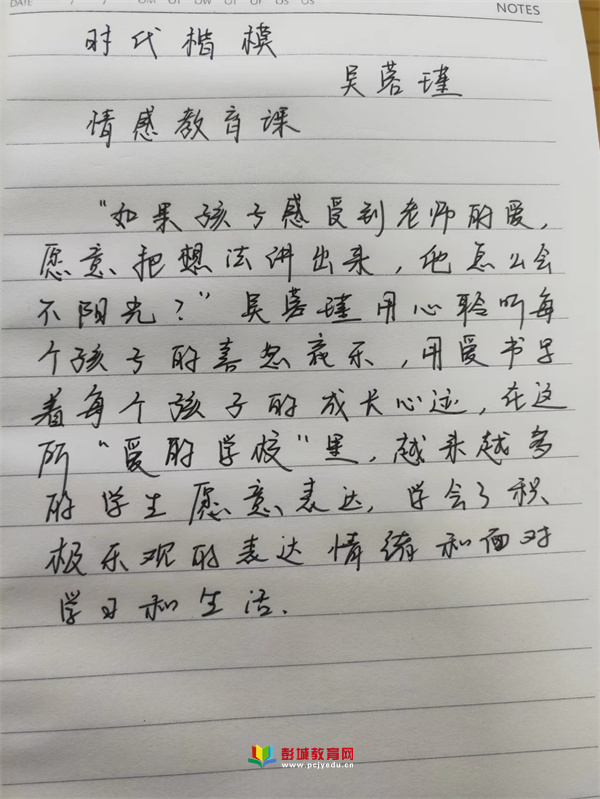 DATE / /
NOTES
时代楷模
吴蓉瑾
情感教育课
“如果孩子感受到老师的爱,
愿意把想法讲出来,他怎么会
不阳光?”吴蓉瑾用心聆听每
个孩子的喜怒哀乐,用爱书写
着每个孩子的成长心迹,在这
所“爱的学校”里,越来越多
的学生愿意表达,学会了积
极乐观的表达情绪和面对
学习和生活.
彭城教育网
www.pcjyedu.cn